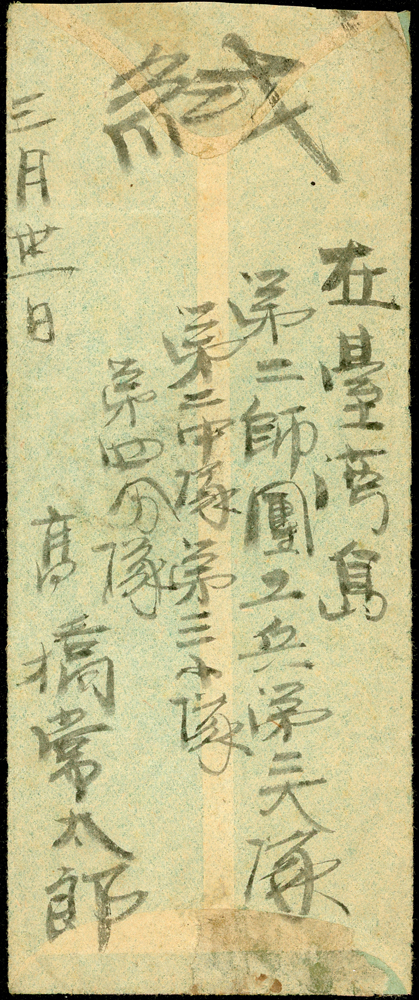 緘
在臺湾島
第二師團工兵第二大隊
第二中隊第三小隊
第四分隊
高橋常太郎
三月卅一日